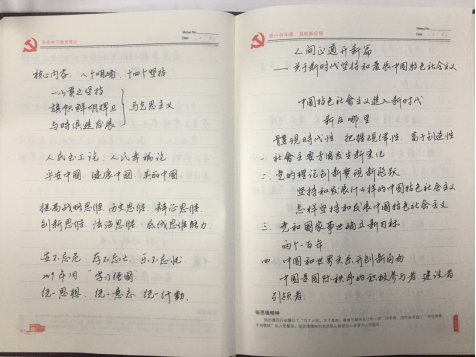 核心内容、八个明确、十四个坚持
一以贯之坚持
旗帜鲜明捍卫
与时俱进发展
马克思主义
人民主心论、人民幸福论
平安中国、健康中国、美丽中国
提高战略思维、历史思维、辩证思维
创新思维、法治思维、底线思维能力
安不忘危 存不忘亡 乐不忘忧
统一思想、统一意志、统一行动
人间正道开新篇
——关于新时代坚持和发展中国特色社会主义
中国特色社会主义进入新时代
新在哪里
体现时代性 把握规律性 富于创造性
一 社会主要矛盾发生新变化
二、党的理论创新实现新飞跃
坚持和发展什么样的中国特色社会主义
怎样坚持和发展中国特色社会主义
三、党和国家事业确立新目标
两个一百年
四 中国和世界关系开创新局面
中国是国际秩序的积极参与者 建设者
引领者